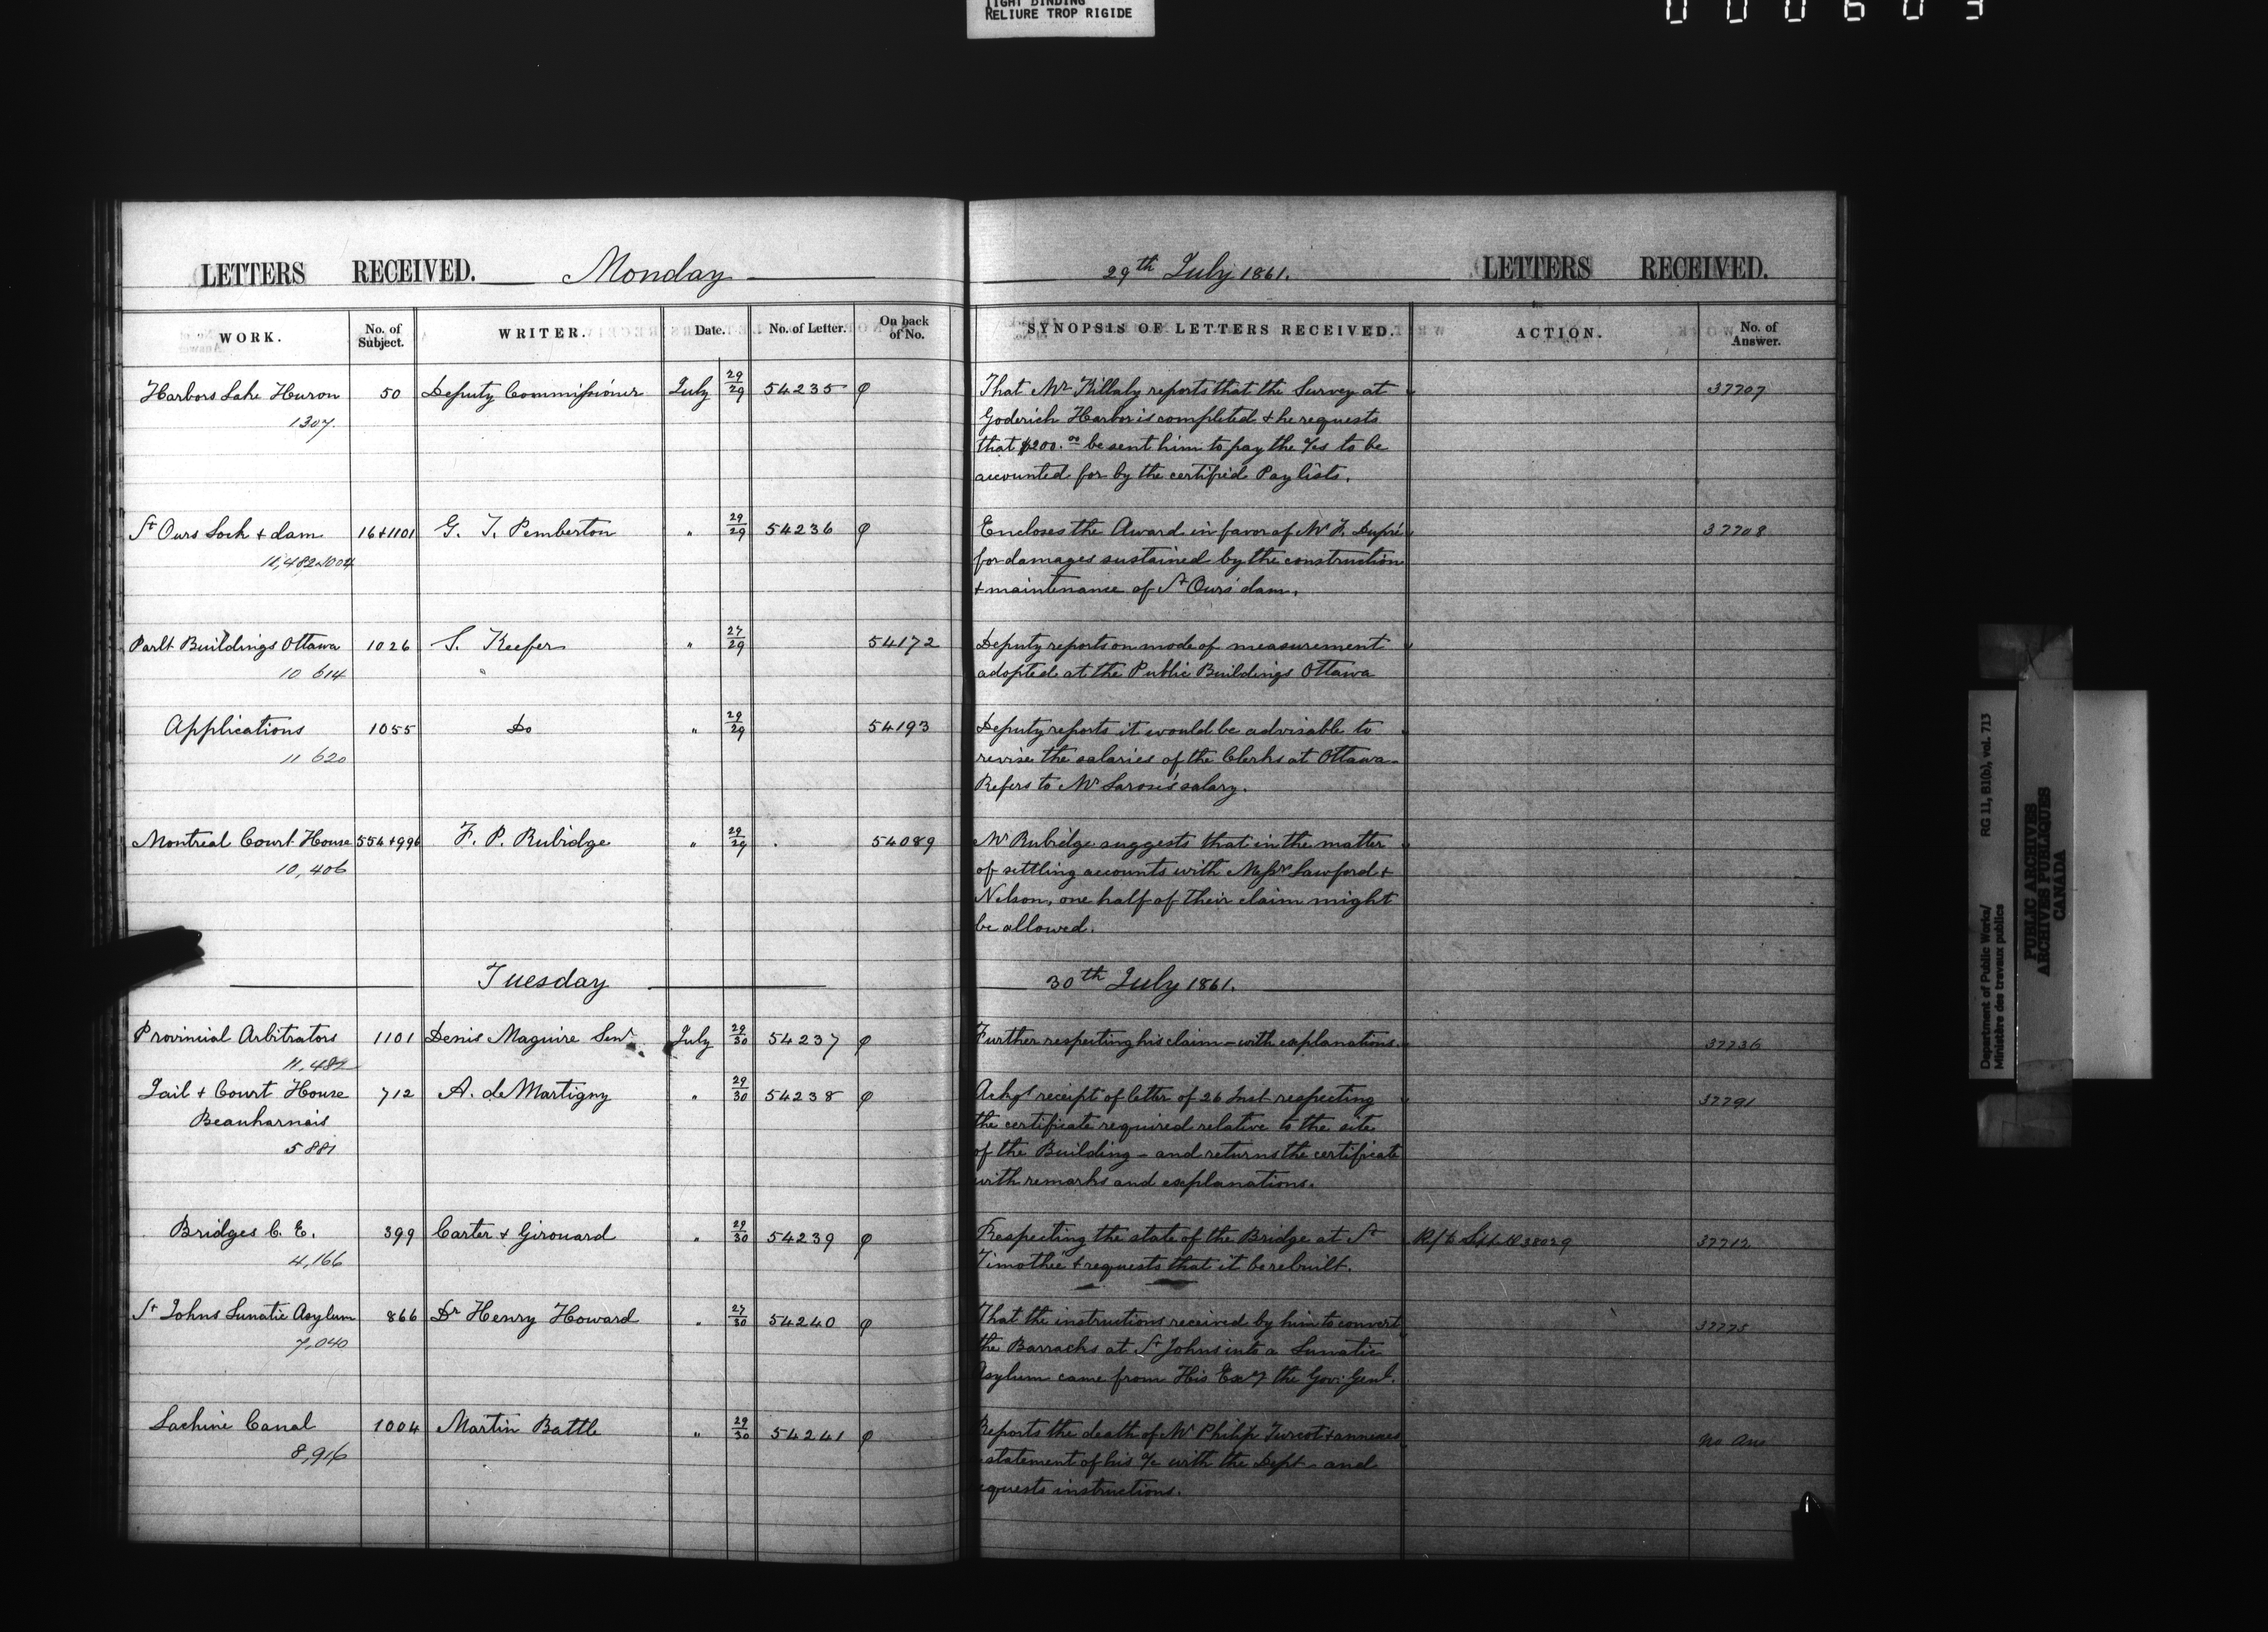 TIGHT BINDING
RELIURE TROP RIGIDE
000603
LETTERS RECEIVED. Monday
29th July 1861. LETTERS RECEIVED.
WORK. No. of Subject. WRITER. Date. No. of Letter. On back of No. SYNOPSIS OF LETTERS RECEIVED. ACTION. No. of Answer.
Harbors Lake Huron 50 Deputy Commissioner July 29/29 54235 φ That Mr Killaly reports that the Survey at 37707
1307. Goderich Harbor is completed & he requests
that $200.00 be sent him to pay the a/cs to be
accounted for by the certified Pay lists.
St Ours Lock & dam 16+1101 G. T. Pemberton " 29/29 54236 φ Encloses the Award in favor of Mr F. Dupré 37708
11,482 for damages sustained by the construction
& maintenance of St Ours' dam.
Parlt Buildings Ottawa 1026 S. Keefer " 27/29 54172 Deputy reports on mode of measurement
10 614 " adopted at the Public Buildings Ottawa
Applications 1055 Do " 29/29 54193 Deputy reports it would be advisable to
11 620 revise the salaries of the Clerks at Ottawa -
Refers to Mr Larose's salary.
Montreal Court House 554+996 F. P. Rubidge " 29/29 54089 Mr Rubidge suggests that in the matter
10,406 of settling accounts with Messrs Lawford &
Nelson, one half of their claim might
be allowed.
Tuesday 30th July 1861.
Provincial Arbitrators 1101 Denis Maguire Senr July 29/30 54237 φ Further respecting his claim - with explanations. 37736
11,482
Jail & Court House 712 A. de Martigny " 29/30 54238 φ Ackgs receipt of letter of 26 Inst respecting 37791
Beauharnois the certificate required relative to the site
5881 of the Building - and returns the certificate
with remarks and explanations.
Bridges C. E. 399 Carter & Girouard " 29/30 54239 φ Respecting the state of the Bridge at St 38029 37712
4,166 Timothée & requests that it be rebuilt.
St Johns Lunatic Asylum 866 Dr Henry Howard " 27/30 54240 φ That the instructions received by him to convert 37775
7,040 the Barracks at St Johns into a Lunatic
Asylum came from His Exy the Gov: Genl.
Lachine Canal 1004 Martin Battle " 29/30 54241 φ Reports the death of Mr Philip Turcot & annexes No Ans
8,916 statement of his a/c with the Dept - and
requests instructions.
Department of Public Works/
Ministère des travaux publics
RG 11, B1(b), vol. 713
PUBLIC ARCHIVES
ARCHIVES PUBLIQUES
CANADA